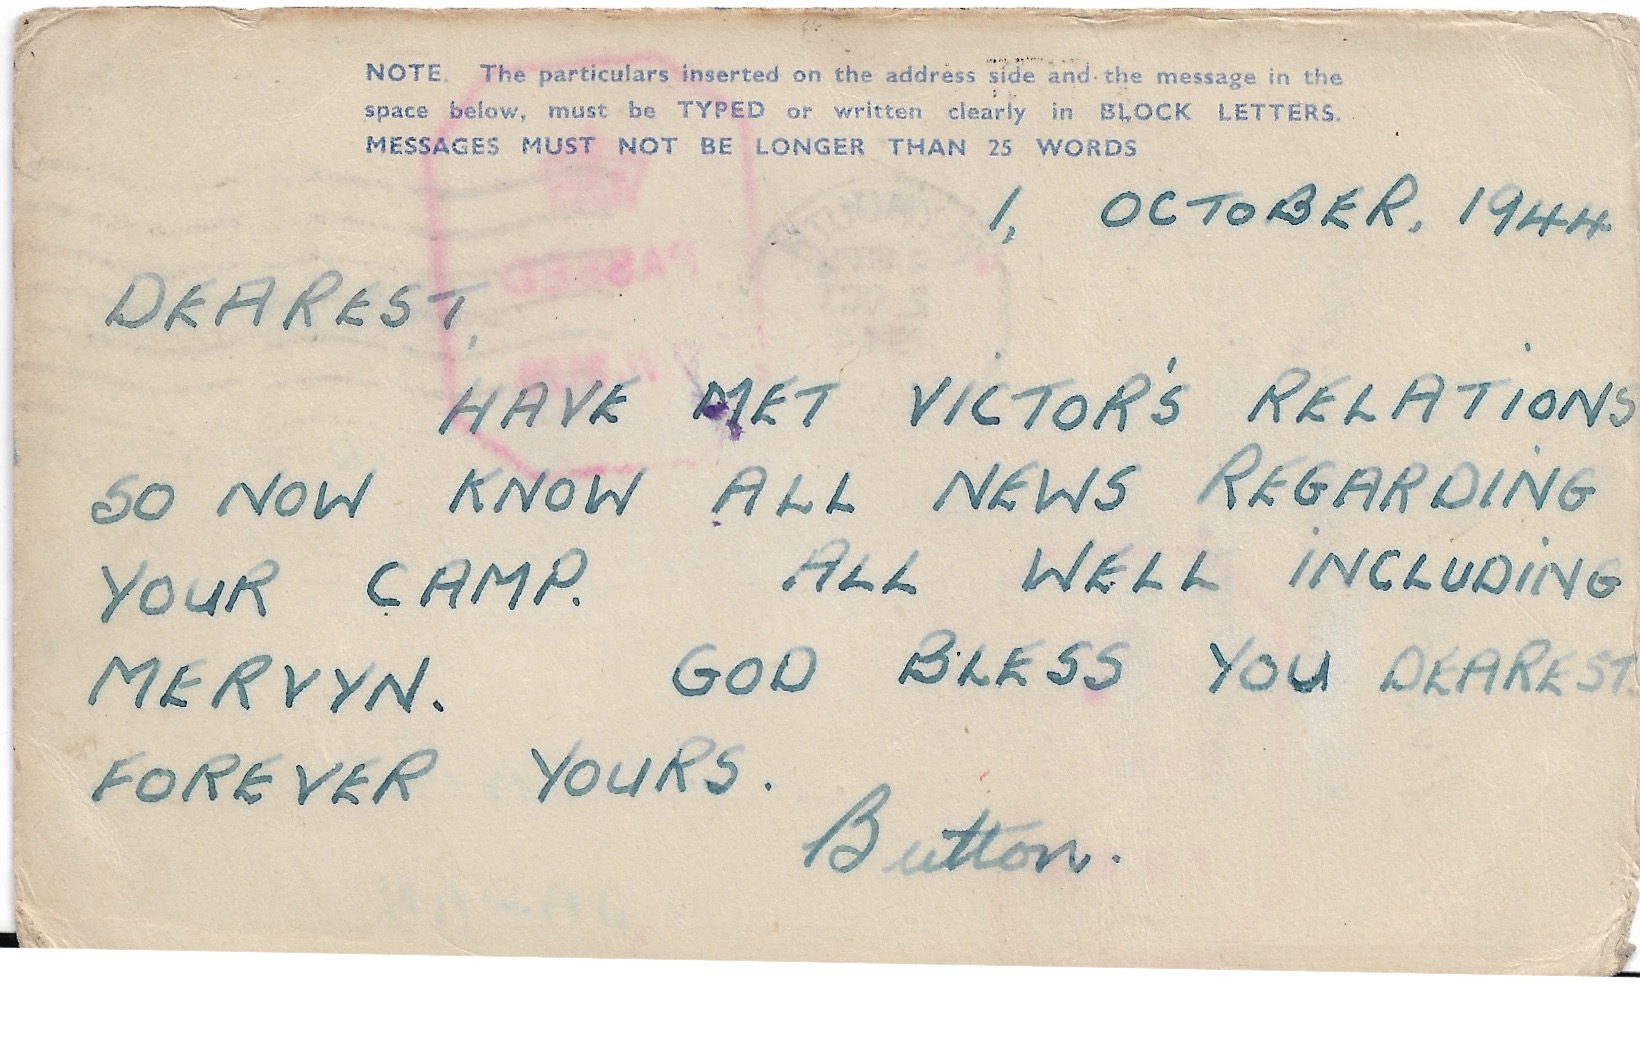 NOTE. The particulars inserted on the address side and the message in the
space below, must be TYPED or written clearly in BLOCK LETTERS.
MESSAGES MUST NOT BE LONGER THAN 25 WORDS
1, OCTOBER, 1944
DEAREST,
HAVE MET VICTOR'S RELATIONS
SO NOW KNOW ALL NEWS REGARDING
YOUR CAMP. ALL WELL INCLUDING
MERVYN. GOD BLESS YOU DEAREST.
FOREVER YOURS.
Button.
PASSED